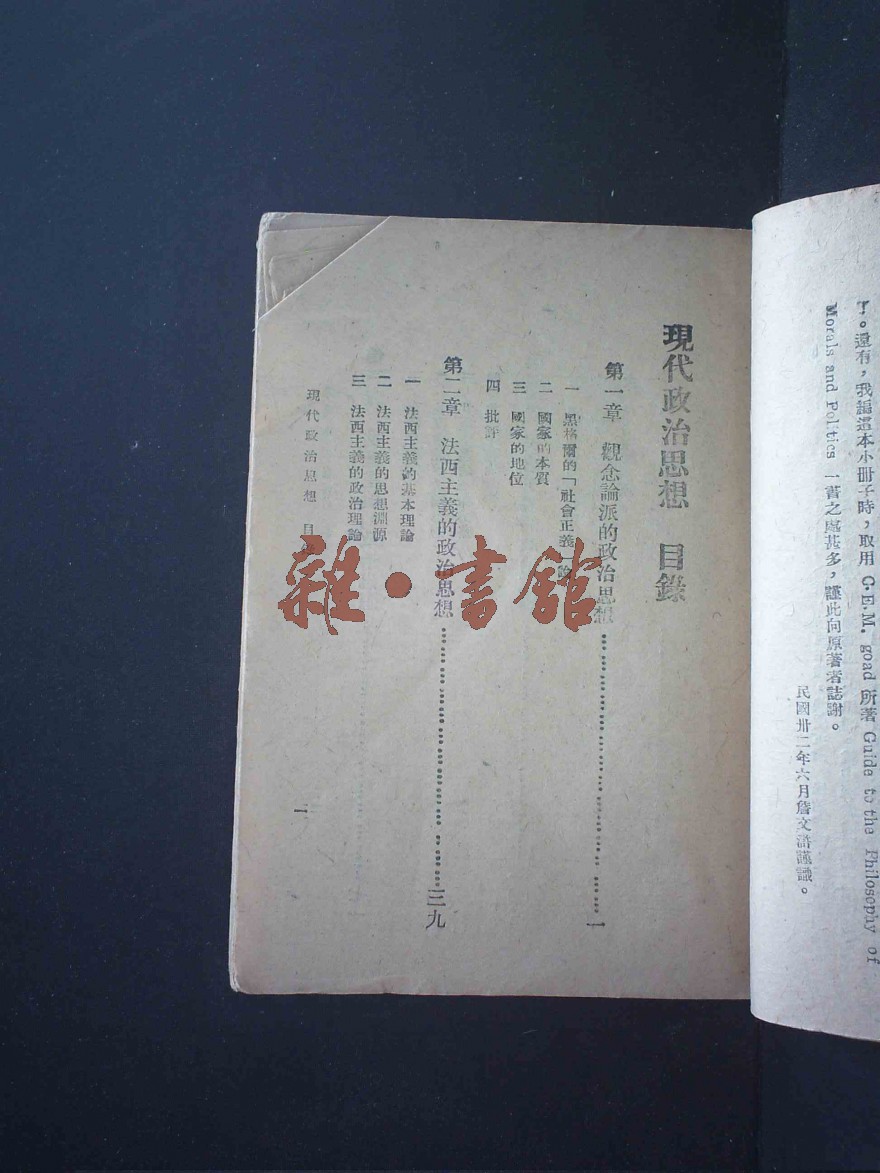 了。還有，我編這本小冊子時，取用 C.E.M. goad 所著 Guide to the Philosophy of
Morals and Politics 一書之處甚多，謹此向原著者誌謝。
民國卅二年六月詹文滸謹識。
現代政治思想 目錄
第一章 觀念論派的政治思想……一
一 黑格爾的「社會正義」
二 國家的本質
三 國家的地位
四 批評
第二章 法西主義的政治思想……三九
一 法西主義的基本理論
二 法西主義的思想淵源
三 法西主義的政治理論
現代政治思想 目
一
雜·書館